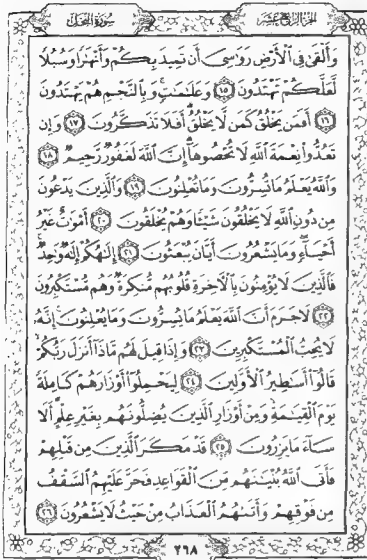 الجزء الرابع عشر
سورة النحل
وَأَلْقَىٰ فِي الْأَرْضِ رَوَاسِيَ أَن تَمِيدَ بِكُمْ وَأَنْهَارًا وَسُبُلًا
لَّعَلَّكُمْ تَهْتَدُونَ ١٥ وَعَلَامَاتٍ وَبِالنَّجْمِ هُمْ يَهْتَدُونَ
١٦ أَفَمَن يَخْلُقُ كَمَن لَّا يَخْلُقُ أَفَلَا تَذَكَّرُونَ ١٧ وَإِن
تَعُدُّوا نِعْمَةَ اللَّهِ لَا تُحْصُوهَا إِنَّ اللَّهَ لَغَفُورٌ رَّحِيمٌ ١٨
وَاللَّهُ يَعْلَمُ مَا تُسِرُّونَ وَمَا تُعْلِنُونَ ١٩ وَالَّذِينَ يَدْعُونَ
مِن دُونِ اللَّهِ لَا يَخْلُقُونَ شَيْئًا وَهُمْ يُخْلَقُونَ ٢٠ أَمْوَاتٌ غَيْرُ
أَحْيَاءٍ وَمَا يَشْعُرُونَ أَيَّانَ يُبْعَثُونَ ٢١ إِلَٰهُكُمْ إِلَٰهٌ وَاحِدٌ
فَالَّذِينَ لَا يُؤْمِنُونَ بِالْآخِرَةِ قُلُوبُهُم مُّنكِرَةٌ وَهُم مُّسْتَكْبِرُونَ
٢٢ لَا جَرَمَ أَنَّ اللَّهَ يَعْلَمُ مَا يُسِرُّونَ وَمَا يُعْلِنُونَ إِنَّهُ
لَا يُحِبُّ الْمُسْتَكْبِرِينَ ٢٣ وَإِذَا قِيلَ لَهُم مَّاذَا أَنزَلَ رَبُّكُمْ
قَالُوا أَسَاطِيرُ الْأَوَّلِينَ ٢٤ لِيَحْمِلُوا أَوْزَارَهُمْ كَامِلَةً
يَوْمَ الْقِيَامَةِ وَمِنْ أَوْزَارِ الَّذِينَ يُضِلُّونَهُم بِغَيْرِ عِلْمٍ أَلَا
سَاءَ مَا يَزِرُونَ ٢٥ قَدْ مَكَرَ الَّذِينَ مِن قَبْلِهِمْ
فَأَتَى اللَّهُ بُنْيَانَهُم مِّنَ الْقَوَاعِدِ فَخَرَّ عَلَيْهِمُ السَّقْفُ
مِن فَوْقِهِمْ وَأَتَاهُمُ الْعَذَابُ مِنْ حَيْثُ لَا يَشْعُرُونَ ٢٦
٢٦٨